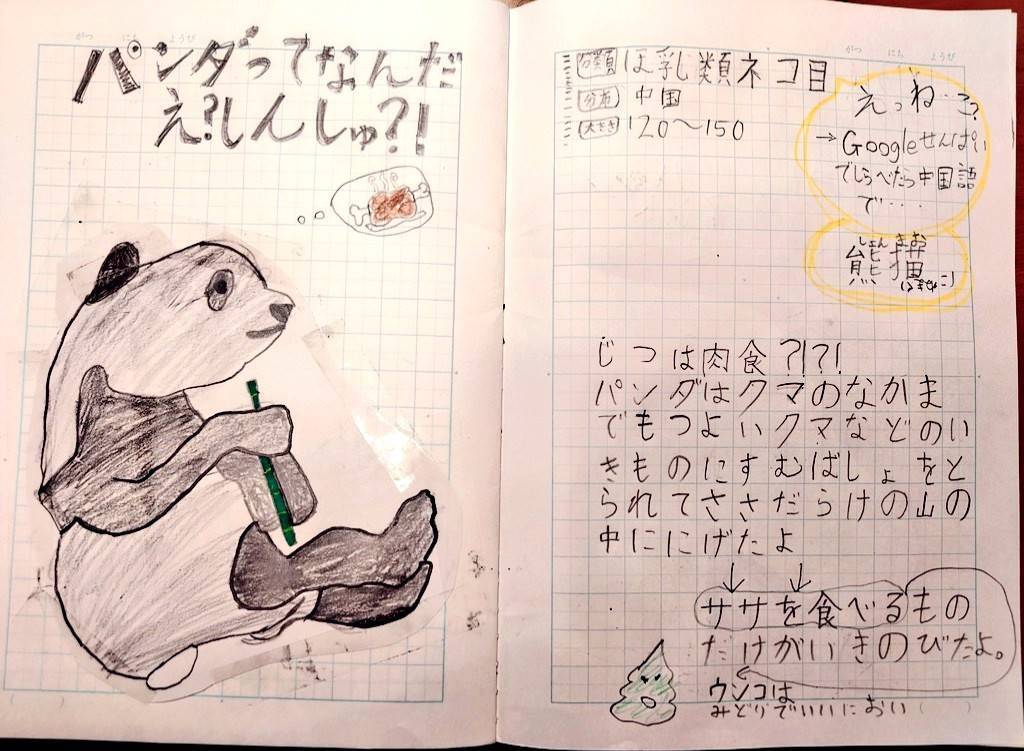 がつ にち ようび
パンダってなんだ
え?しんしゅ?!
がつ にち ようび
種類 ほ乳類ネコ目
分布 中国
大きさ 120〜150
えっね・・こ??
→Googleせんぱい
でしらべたら中国語
で・・・
しょん まお
熊猫
じつは肉食?!?!
パンダはクマのなかま
でもつよいクマなどのい
きものにすむばしょをと
られてささだらけの山の
中ににげたよ
ササを食べるもの
だけがいきのびたよ。
ウンコは
みどりでいいにおい